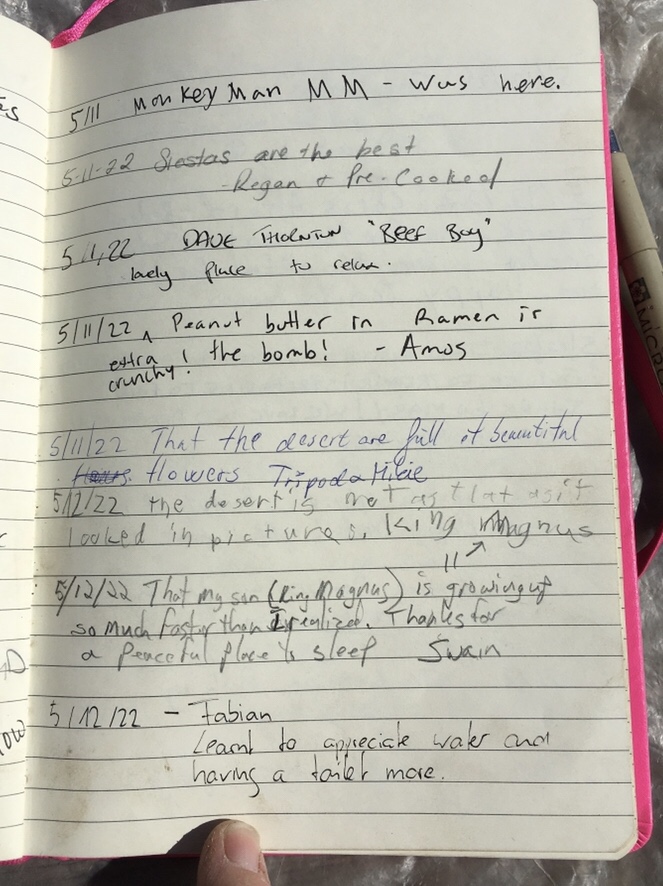 5/11 Monkey Man MM - was here.
5-11-22 Siestas are the best
- Regan + Pre-Cooked
5/11/22 DAVE THORNTON "BEEF BOY"
lovely place to relax.
5/11/22 ^ Peanut butter in Ramen is
extra the bomb! - Amos
crunchy!
5/11/22 That the desert are full of beautiful
flowers Tripod &
5/12/22 the desert is not as flat as it
looked in pictures. King Magnus
11
5/12/22 That my son (King Magnus) is growing up
so much faster than I realized. Thanks for
a peaceful place to sleep Swain
5/12/22 - Fabian
Learnt to appreciate water and
having a toilet more.
MICR